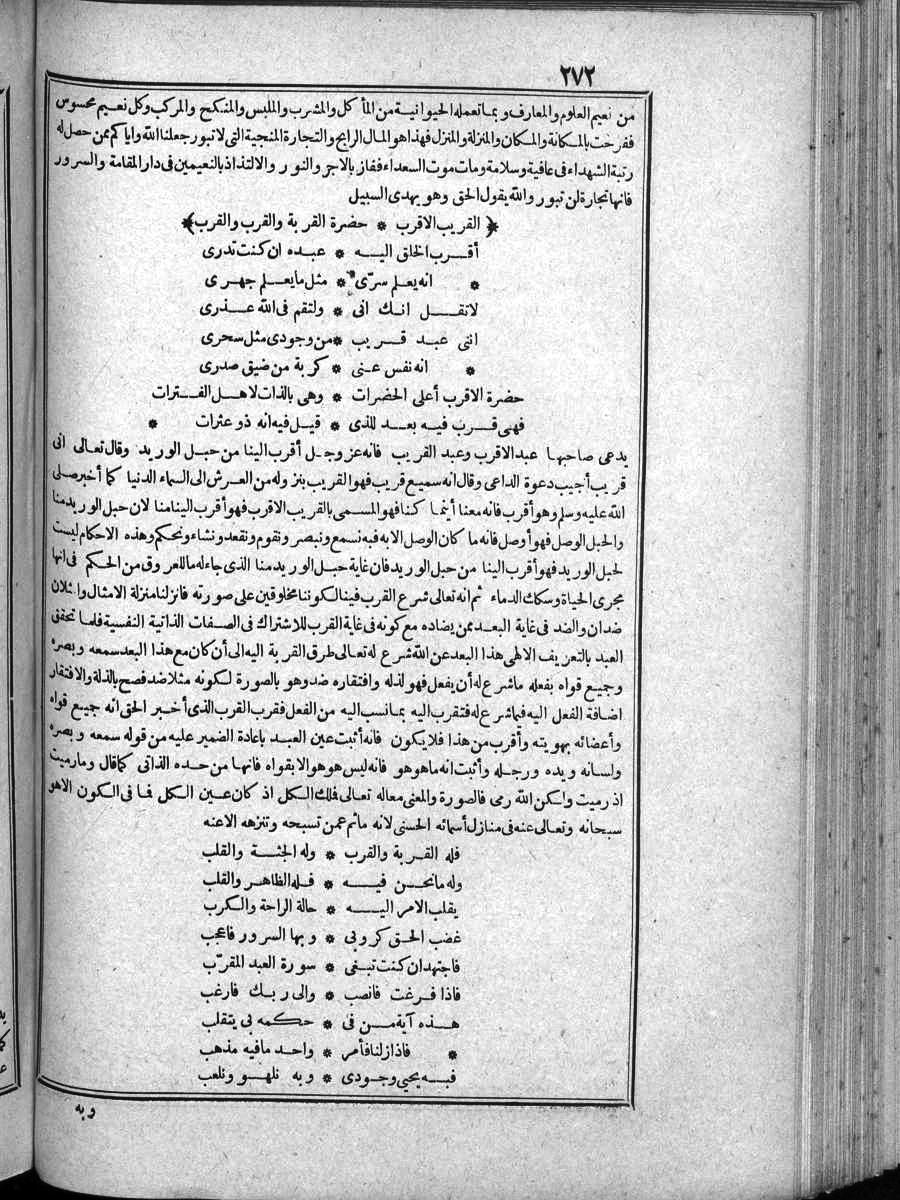 ٢٧٢
من نعيم العلوم والمعارف وبما تعمله الحيوانية من المأكل والمشرب والملبس والمنكح والمركب وكل نعيم محسوس
ففرحت بالمكانة والمكان والمنزلة والمنزل فهذا هو المال الرابح والتجارة المنجية التى لا تبور جعلنا الله واياكم ممن حصل له
رتبة الشهداء فى عافية وسلامة ومات موت السعداء ففاز بالاجر والنور والالتذاذ بالنعيمين فى دار المقامة والسرور
فانها تجارة لن تبور والله يقول الحق وهو يهدى السبيل
﴿القريب الاقرب * حضرة القربة والقرب والقرب﴾
أقرب الخلق اليه * عبده ان كنت تدرى
* انه يعلم سرّى * مثل ما يعلم جهرى
لا تقل انك انى * ولتقم فى الله عذرى
اننى عبد قريب * من وجودى مثل سحرى
* انه نفس عنى * كربة من ضيق صدرى
حضرة الاقرب أعلى الحضرات * وهى بالذات لاهل الفترات
فهى قرب فيه بعد للذى * قيل فيه انه ذو عثرات *
يدعى صاحبها عبد الاقرب وعبد القريب فانه عز وجل أقرب الينا من حبل الوريد وقال تعالى انى
قريب أجيب دعوة الداعى وقال انه سميع قريب فهو القريب بنزوله من العرش الى السماء الدنيا كما أخبر صلى
الله عليه وسلم وهو أقرب فانه معنا أينما كنا فهو المسمى بالقريب الاقرب فهو أقرب الينا منا لان حبل الوريد منا
والحبل الوصل فهو أوصل فانه ما كان الوصل الا به فبه نسمع ونبصر ونقوم ونقعد ونشاء ونحكم وهذه الاحكام ليست
لحبل الوريد فهو أقرب الينا من حبل الوريد فان غاية حبل الوريد منا الذى جاء له ما للعروق من الحكم فى انها
مجرى الحياة وسكك الدماء ثم انه تعالى شرع القرب فينا لكوننا مخلوقين على صورته فانزلنا منزلة الامثال والمثلان
ضدان والضد فى غاية البعد ممن يضاده مع كونه فى غاية القرب للاشتراك فى الصفات الذاتية النفسية فلما تحقق
العبد بالتعريف الالهى هذا البعد عن الله شرع له تعالى طرق القربة اليه الى أن كان مع هذا البعد سمعه وبصره
وجميع قواه بفعله ما شرع له أن يفعل فهو لذله وافتقاره ضد وهو بالصورة لكونه مثلا ضد فصح بالذلة والافتقار
اضافة الفعل اليه فيما شرع له فتقرب اليه بما نسب اليه من الفعل فقرب القرب الذى أخبر الحق انه جميع قواه
وأعضائه بهويته وأقرب من هذا فلا يكون فانه أثبت عين العبد باعادة الضمير عليه من قوله سمعه وبصره
ولسانه ويده ورجله وأثبت انه ما هو هو فانه ليس هو هو الا بقواه فانها من حده الذاتى كما قال وما رميت
اذ رميت ولكن الله رمى فالصورة والمعنى معا له تعالى فملك الكل اذ كان عين الكل فما فى الكون الا هو
سبحانه وتعالى عنه فى منازل أسمائه الحسنى لانه ما ثم عمن تسبحه وتنزهه الا عنه
فله القربة والقرب * وله الجثة والقلب
وله ما نحن فيه * فله الظاهر والقلب
يقلب الامر اليه * حالة الراحة والكرب
غضب الحق كروبى * وبها السرور فاعجب
فاجتهد ان كنت تبغى * سورة العبد المقرّب
فاذا فرغت فانصب * والى ربك فارغب
هذه آية من فى * حكمه بى يتقلب
* فاذا زلنا فأمر * واحد ما فيه مذهب
فبه يحيى وجودى * وبه نلهو ونلعب
وبه